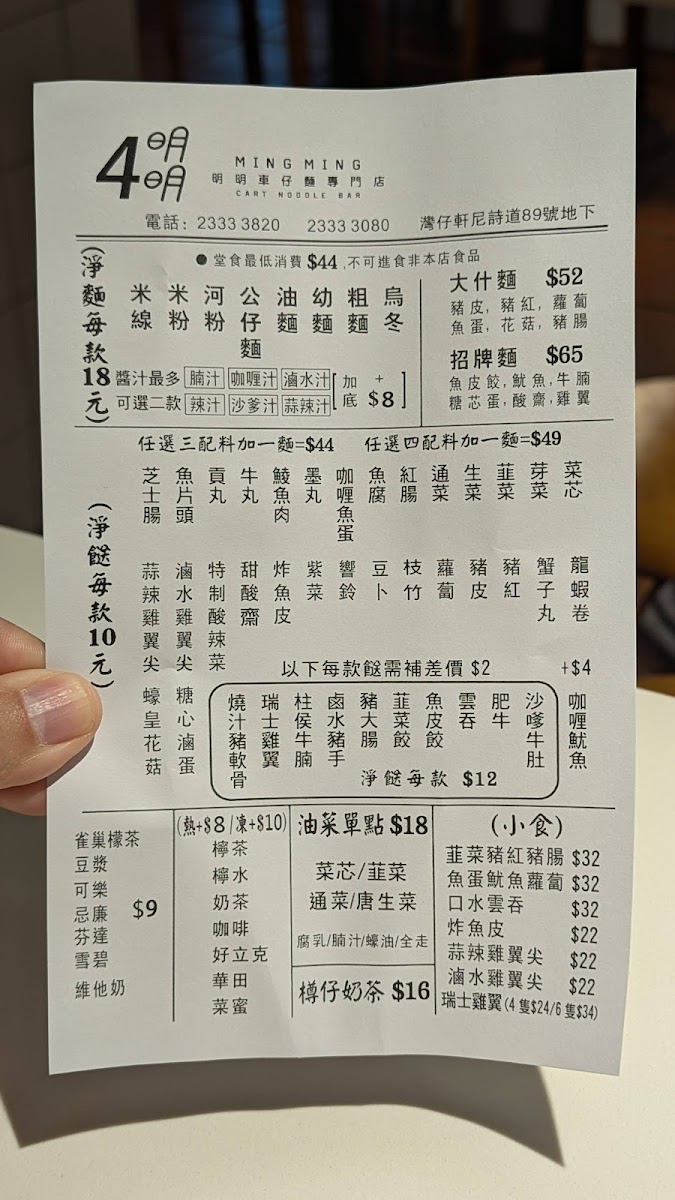 4明明
MING MING
明明車仔麵專門店
CART NOODLE BAR
電話: 2333 3820 2333 3080 灣仔軒尼詩道89號地下
●堂食最低消費 $44 ,不可進食非本店食品
(淨麵每款18元)
米線
米粉
河粉
公仔麵
油麵
幼麵
粗麵
烏冬
醬汁最多 腩汁 咖喱汁 滷水汁
可選二款 辣汁 沙爹汁 蒜辣汁
[加底 + $8]
大什麵 $52
豬皮, 豬紅, 蘿蔔
魚蛋, 花菇, 豬腸
招牌麵 $65
魚皮餃, 魷魚, 牛腩
糖芯蛋, 酸齋, 雞翼
任選三配料加一麵=$44 任選四配料加一麵=$49
(淨餸每款10元)
芝士腸
魚片頭
貢丸
牛丸
鯪魚肉
墨丸
咖喱魚蛋
魚腐
紅腸
通菜
生菜
韮菜
芽菜
菜芯
蒜辣雞翼尖
滷水雞翼尖
特制酸辣菜
甜酸齋
炸魚皮
紫菜
響鈴
豆卜
枝竹
蘿蔔
豬皮
豬紅
蟹子丸
龍蝦卷
蠔皇花菇
糖心滷蛋
以下每款餸需補差價 $2 +$4
燒汁豬軟骨
瑞士雞翼
柱侯牛腩
鹵水豬手
豬大腸
韮菜餃
魚皮餃
雲吞
肥牛
沙嗲牛肚
咖喱魷魚
淨餸每款 $12
雀巢檬茶
豆漿
可樂
忌廉
芬達
雪碧
維他奶
$9
(熱+$8/凍+$10)
檸茶
檸水
奶茶
咖啡
好立克
華田
菜蜜
油菜單點 $18
菜芯/韮菜
通菜/唐生菜
腐乳/腩汁/蠔油/全走
樽仔奶茶 $16
(小食)
韮菜豬紅豬腸 $32
魚蛋魷魚蘿蔔 $32
口水雲吞 $32
炸魚皮 $22
蒜辣雞翼尖 $22
滷水雞翼尖 $22
瑞士雞翼(4 隻$24/6 隻$34)